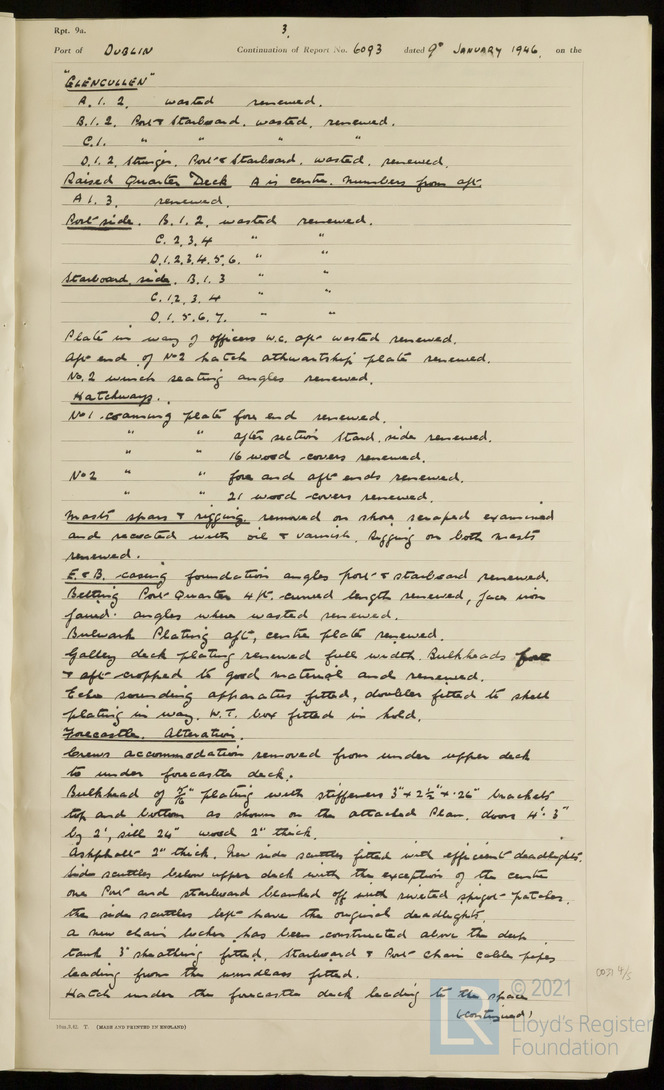 Rpt. 9a.
3.
Port of DUBLIN Continuation of Report No. 6093 dated 9th JANUARY 1946. on the
"GLENCULLEN"
A. 1. 2. wasted renewed.
B. 1. 2. Port & Starboard. wasted, renewed.
C. 1. " " " "
D. 1. 2. Stringer. Port & Starboard. wasted, renewed.
Raised Quarter Deck A is centre. Numbers from aft.
A 1. 3. renewed.
Port side. B. 1. 2. wasted renewed.
C. 2. 3. 4 " "
D. 1. 2. 3. 4. 5. 6. " "
Starboard side. B. 1. 3 " "
C. 1. 2. 3. 4 " "
D. 1. 5. 6. 7. " "
Plate in way of officers W.C. aft wasted renewed.
Aft end of No 2 hatch athwartship plate renewed.
No. 2 winch seating angles renewed.
Hatchways.
No 1. coaming plate fore end renewed.
" " after section Starb. side renewed.
" " 16 wood covers renewed.
No 2 " " fore and aft ends renewed.
" " 21 wood covers renewed.
Masts spars & rigging. removed on shore scraped examined
and recoated with oil & varnish. Rigging on both masts
renewed.
E. & B. casing foundation angles port & starboard renewed.
Belting Port Quarter 4 ft. curved length renewed, face iron
faired. angles where wasted renewed.
Bulwark Plating aft, centre plate renewed.
Galley deck plating renewed full width. Bulkheads fore
& aft cropped to good material and renewed.
Echo sounding apparatus fitted, doubler fitted to shell
plating in way. W.T. box fitted in hold.
Forecastle. Alteration.
Crews accommodation removed from under upper deck
to under forecastle deck.
Bulkhead of plating with stiffeners 3" x 2½" x .26" brackets
top and bottom as shown on the attached Plan. doors 4'. 3"
by 2', sill 24" wood 2" thick.
Ashphalt 2" thick. New side scuttles fitted with efficient deadlights.
Side scuttles below upper deck with the exception of the centre
one Port and starboard blanked off with riveted spigot patches.
the side scuttles left have the original deadlights.
A new chain locker has been constructed above the deep
tank 3" sheathing fitted. Starboard & Port Chain cable pipes
leading from the windlass fitted.
Hatch under the forecastle deck leading to the space
(continued)
10m,8.43. T. (MADE AND PRINTED IN ENGLAND)
© 2021
LR
Lloyd's Register
Foundation